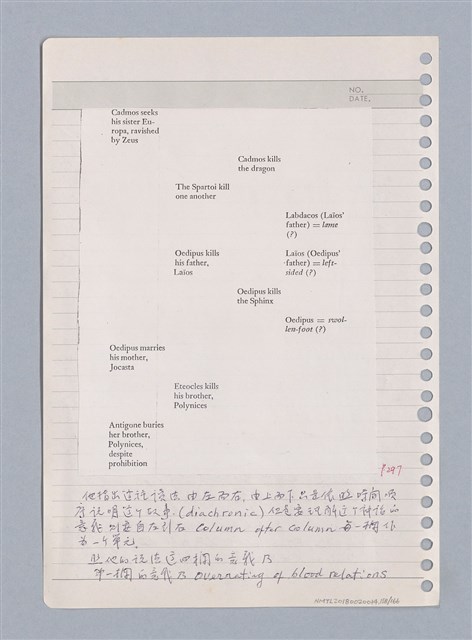 NO.
DATE.
Cadmos seeks
his sister Eu-
ropa, ravished
by Zeus
Cadmos kills
the dragon
The Spartoi kill
one another
Labdacos (Laïos'
father) = lame
(?)
Oedipus kills
his father,
Laïos
Laïos (Oedipus'
father) = left-
sided (?)
Oedipus kills
the Sphinx
Oedipus = swol-
len-foot (?)
Oedipus marries
his mother,
Jocasta
Eteocles kills
his brother,
Polynices
Antigone buries
her brother,
Polynices,
despite
prohibition
P297
他指出這種讀法由左而右,由上而下只是依照時間順
序說明這个故事.(diachronic) 但是要理解这个神話的
意義 則要自左到右 column after column 每一欄作
为一个單元.
照他的說法這四欄的意義乃
第一欄的意義乃 overrating of blood relations